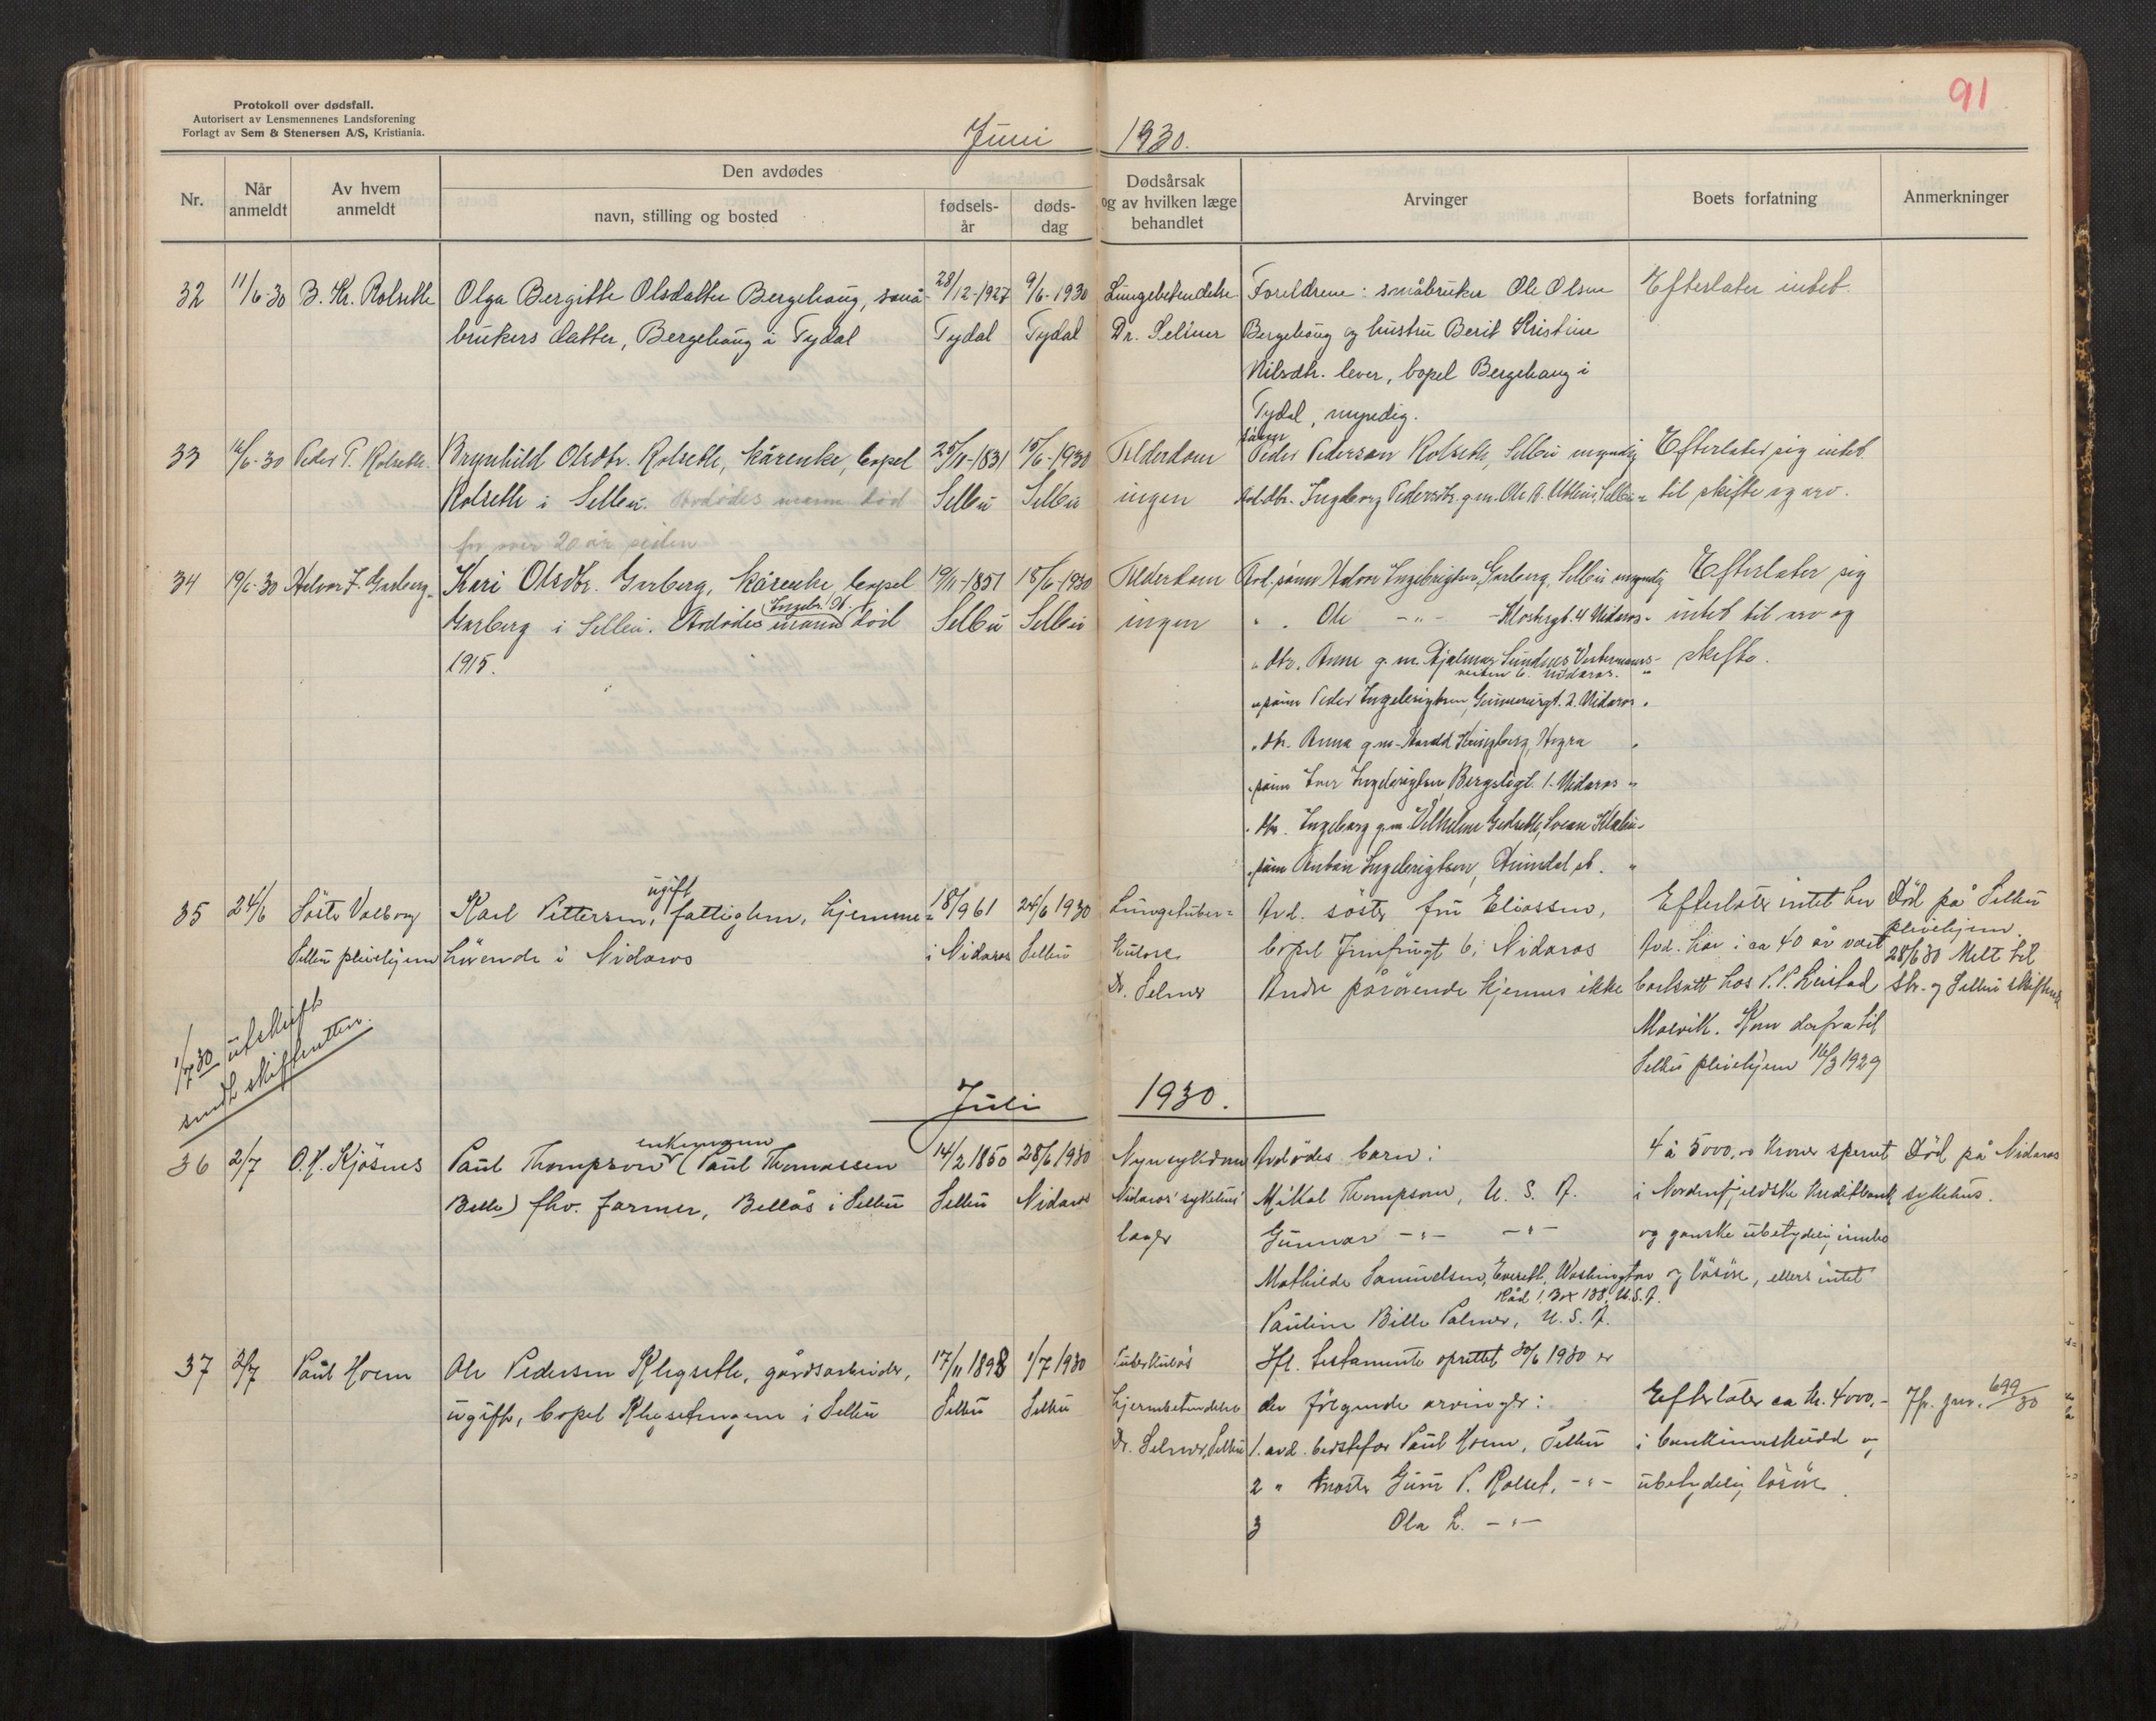 91
Protokoll over dødsfall.
Autorisert av Lensmennenes Landsforening
Forlagt av Sem & Stenersen A/S, Kristiania.
Juni 1930.
Nr.
Når anmeldt
Av hvem anmeldt
Den avdødes
navn, stilling og bosted
fødsels-år
døds-dag
Dødsårsak og av hvilken læge behandlet
Arvinger
Boets forfatning
Anmerkninger
32 11/6-30 B. Kr. Rolseth Olga Bergitte Olsdatter Bergehaug, små- 28/12-1927 9/6-1930 Lungebetendelse Foreldrene: småbruker Ole Olsen Efterlater intet.
brukers datter, Bergehaug i Tydal Tydal Tydal Dr. Selmer Bergehaug og hustru Berit Kristine
Nilsdtr. lever, bopel Bergehaug i
Tydal, myndig.
33 16/6-30 Peder P. Rolseth. Brynhild Olsdtr. Rolseth, kårenke, bopel 25/11-1831 15/6-1930 Alderdom sønn Peder Pederson Rolseth, Selbu myndig Efterlater sig intet
Rolseth i Selbu. Avdødes mann død Selbu Selbu ingen Avd. dtr. Ingeborg Pedersdtr. g.m. Ole A. Uthus, Selbu " til skifte og arv.
for over 20 år siden
34 19/6-30 Halvor I. Garberg. Kari Olsdtr. Garberg, kårenke, bopel 19/11-1851 18/6-1930 Alderdom Avd. sønn Halvor Ingebrigtsen Garberg, Selbu myndig Efterlater sig
Garberg i Selbu. Avdødes mann Ingebr. H. død Selbu Selbu ingen " " Ole -"- Klostergt. 4 Nidaros " intet til arv og
1915. " dtr. Anne g.m. Hjalmar Sundnes Vestermanns- skifte.
veiten 6. Nidaros. "
" sønn Peder Ingebrigtsen, Gunnerusgt. 2. Nidaros "
" dtr. Anna g.m. Harald Kringberg, Hegra "
" sønn Iver Ingebrigtsen Bergsligt. 1. Nidaros "
" dtr. Ingeborg g.m. Vilhelm Gjedseth, Svean Klæbu "
" sønn Anton Ingebrigtsen, st. "
35 24/6 Søster Valborg Karl Pettersen, ugift fattiglem, hjemme- 18/9 61 24/6 1930 Lungetuber- Avd. søster fru Eliassen, Efterlater intet her Død på Selbu
Selbu pleiehjem hørende i Nidaros i Nidaros Selbu kulose bopel Jomfrugt 6, Nidaros Avd. har i ca 40 år vært pleiehjem.
Dr. Selmer Andre pårørende kjennes ikke bortsatt hos P. P. Leistad 28/6 30 Melt til
Malvik. Kom derfra til Str. og Selbu skifterett
Selbu pleiehjem 16/3 1929
1/7 30 utskrift
sendt skifteretten.
Juli 1930.
36 2/7 O. H. Kjøsnes Paul Thompson enkemann (Paul Thomassen 14/2 1850 28/6 1930 Nyresykdom Avdødes barn: 4 à 5000,- kroner sperret Død på Nidaros
Belle) fhv. farmer, Bellås i Selbu Selbu Nidaros Nidaros sykehus' Mikal Thompson, U. S. A. i Nordenfjeldske Kreditbank sykehus.
læger Gunnar -"- -"- og ganske ubetydelig innbo
Mathilde Samuelsen, Everett, Washington og løsøre, ellers intet
Råd 1, Box 138, U.S.A.
Pauline Bille Palmer, U. S. A.
37 2/7 Paul Hoem Ole Pedersen Klegseth, gårdsarbeider, 17/11 1898 1/7 1930 Tuberkuløs Ifl. testamente oprettet 30/6 1930 er
ugift, bopel i Selbu Selbu Selbu hjernebetendelse der følgende arvinger: Efterlater ca kr. 4000,- Jfr. jrnr. 699/30
Dr. Selmer, Selbu 1. avd. bestefar Paul Hoem, Selbu i bankinnskudd og
2 " moster Guru P. Rolset, -"- ubetydelig løsøre.
3 Ola L. -"-